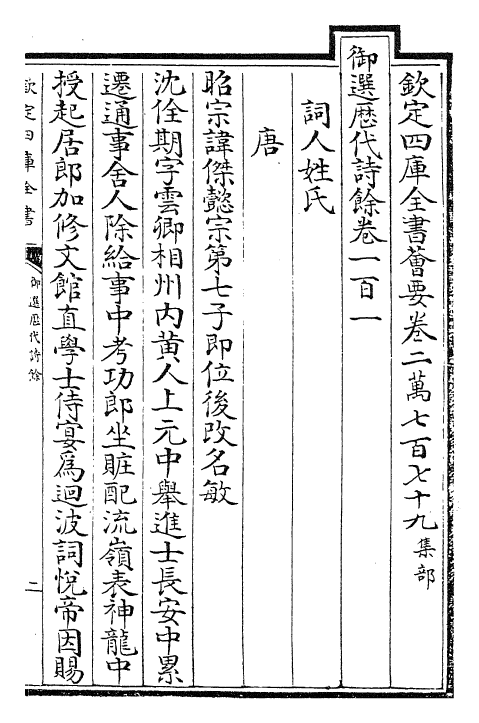 欽定四庫全書薈要卷二萬七百七十九集部
御選歷代詩餘卷一百一
詞人姓氏
唐
昭宗諱傑懿宗第七子即位後改名敏
沈佺期字雲卿相州內黃人上元中舉進士長安中累
遷通事舍人除給事中考功郎坐贓配流嶺表神龍中
授起居郎加修文館直學士侍宴為迴波詞悅帝因賜
欽定四庫全書
御選歷代詩餘
二